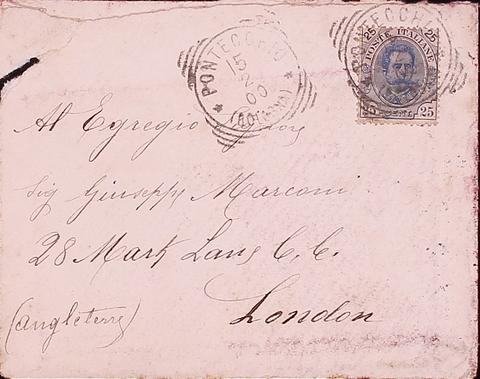 PONTECCHIO
15
2
00
(BOLOGNA)
PONTECCHIO
25 25
POSTE ITALIANE
25
Al Egregio
Sig Giuseppe Marconi
28 Mark Lane E. C.
London
(Angleterre)